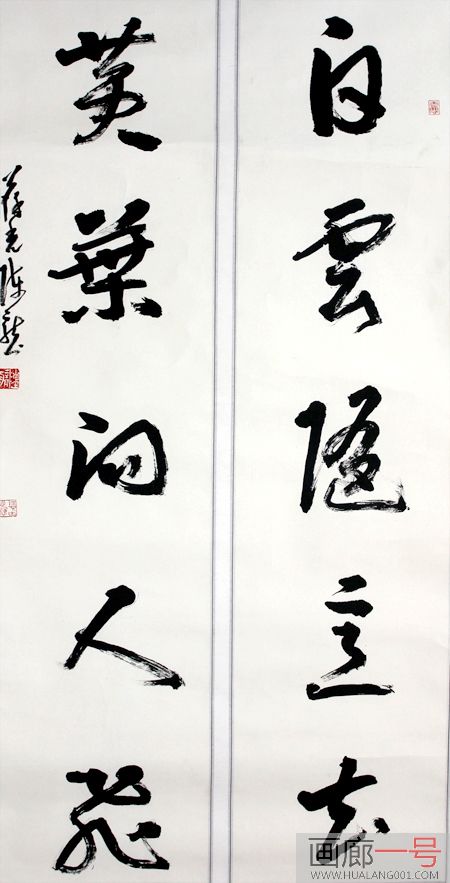 白雲隨意去
黄葉向人飛
画廊一号
WWW.HUALANG001.COM